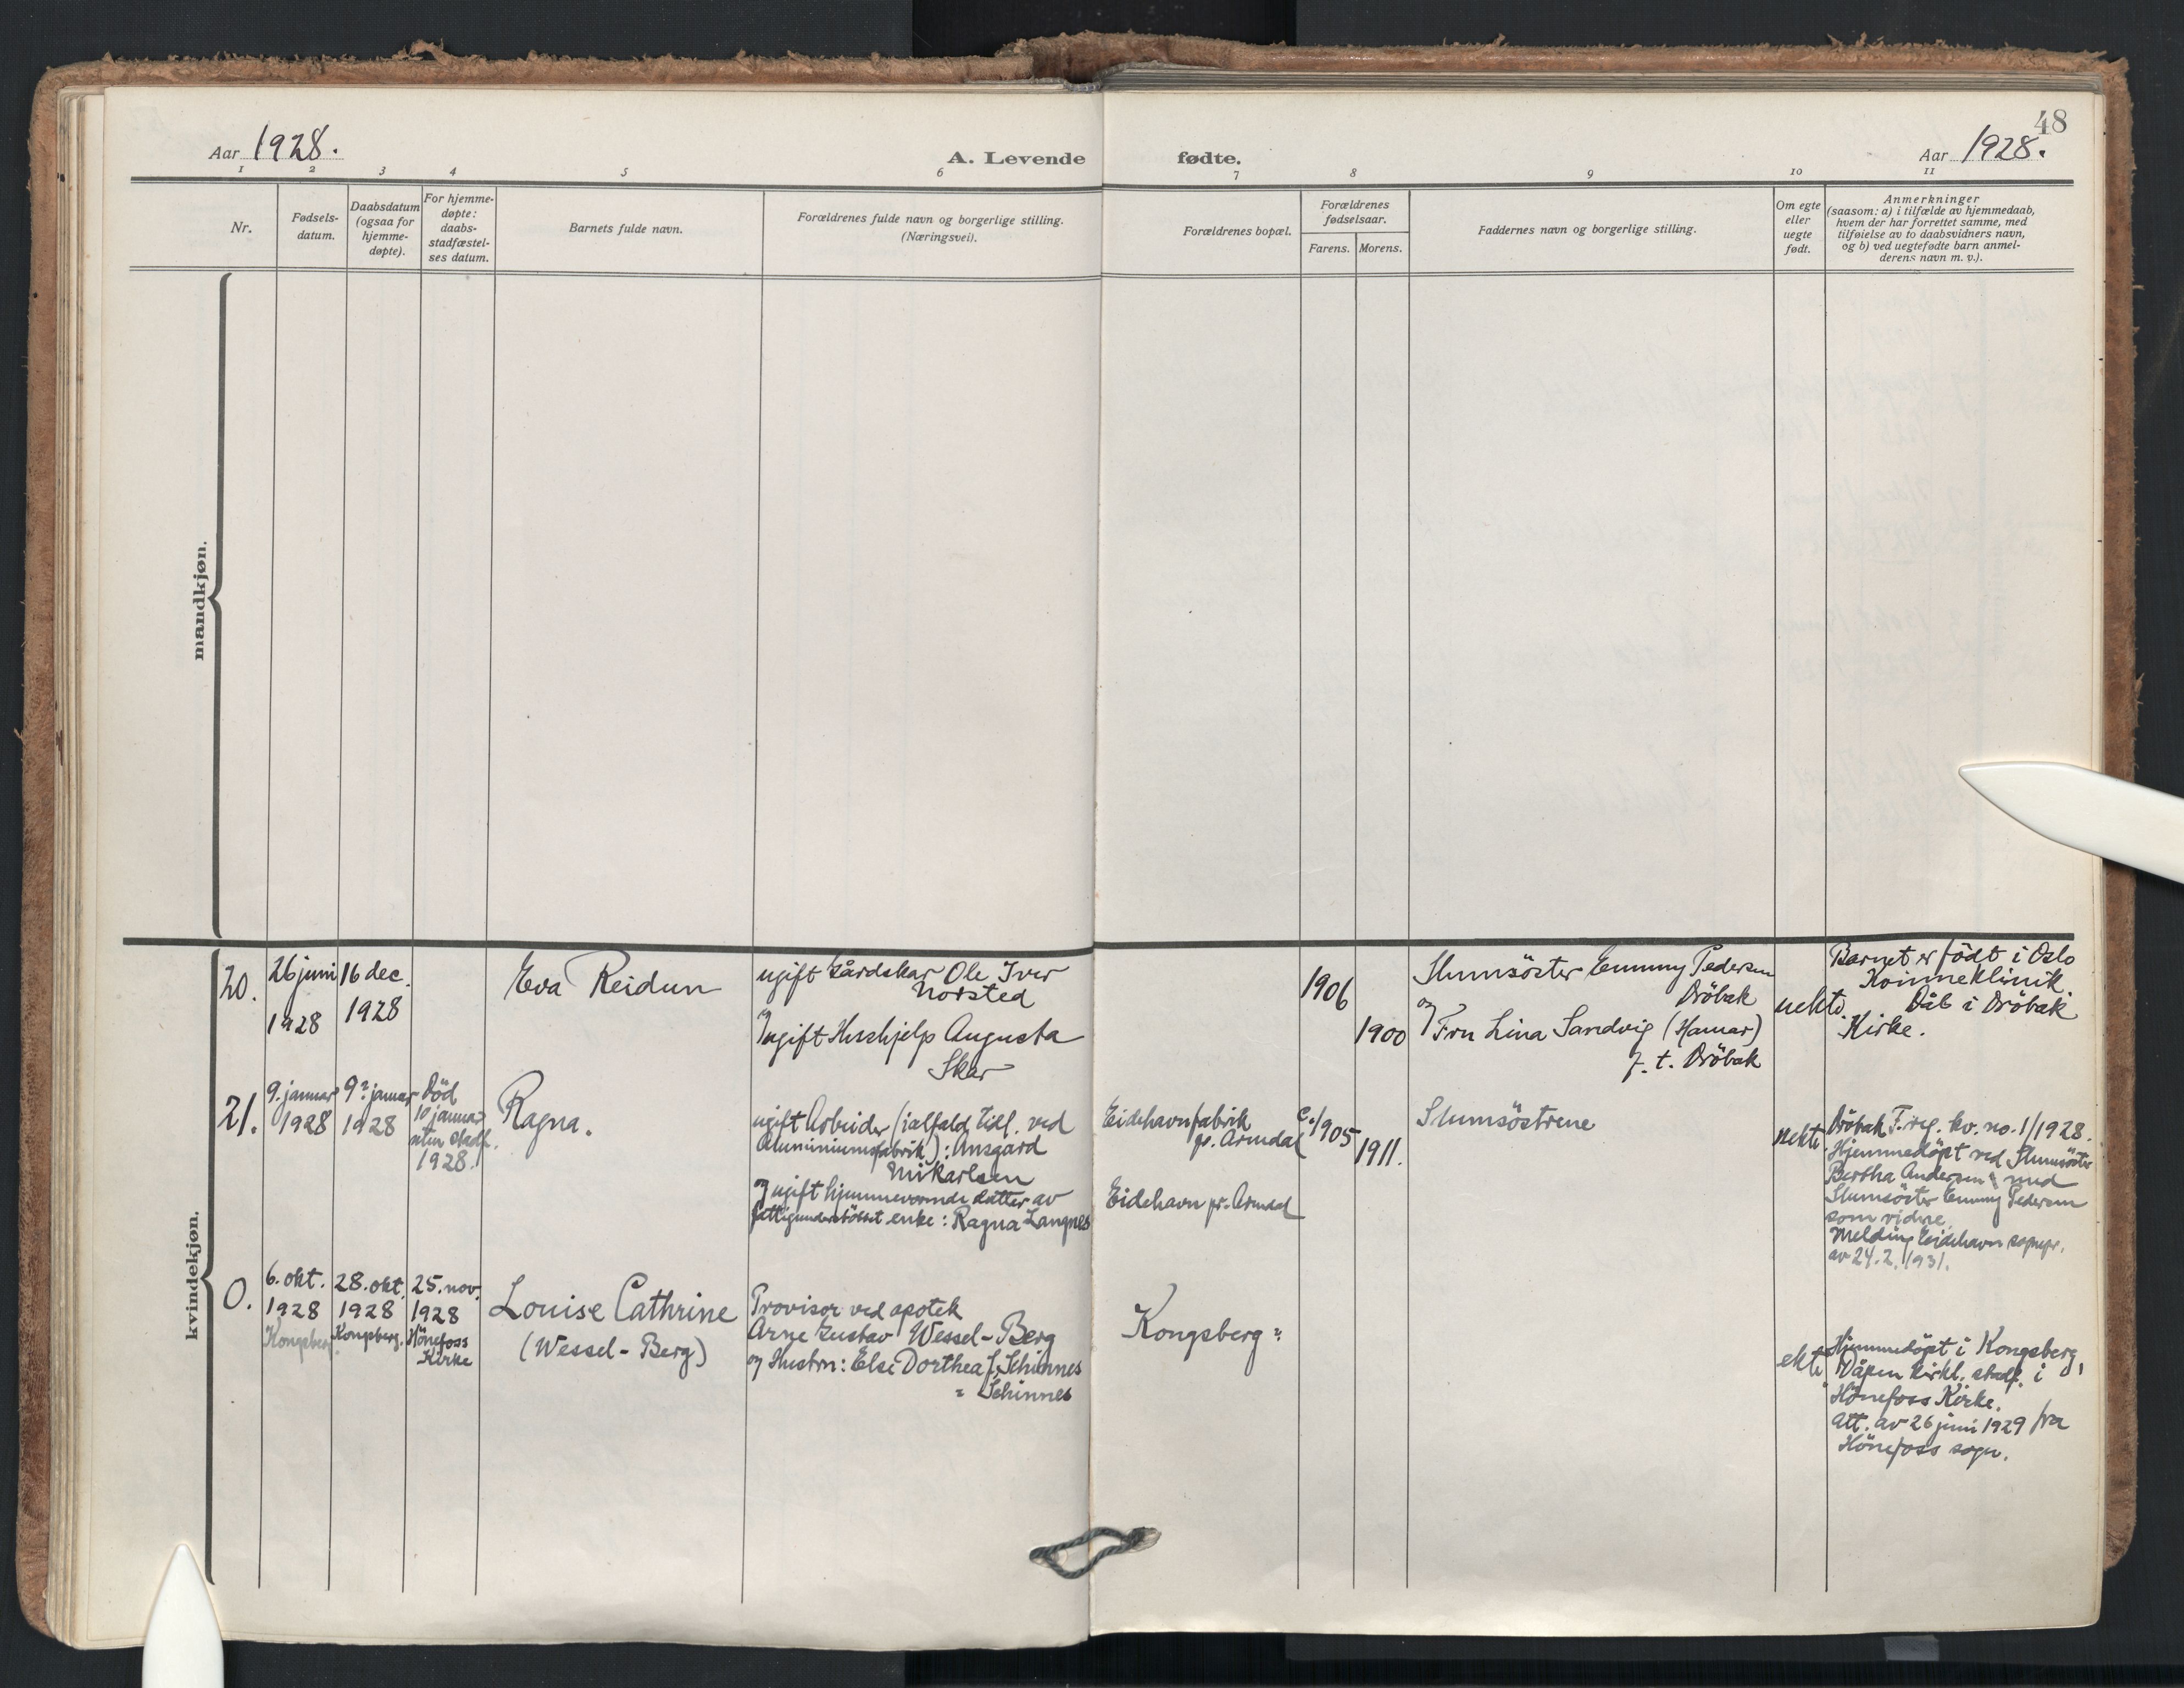 48
Aar 1928.
A. Levende
fødte.
Aar 1928.
1 2 3 4 5 6 7 8 9 10 11
Nr.
Fødsels-
datum.
Daabsdatum
(ogsaa for
hjemme-
døpte).
For hjemme-
døpte:
daabs-
stadfæstel-
ses datum.
Barnets fulde navn.
Forældrenes fulde navn og borgerlige stilling.
(Næringsvei).
Forældrenes bopæl.
Forældrenes
fødselsaar.
Farens. Morens.
Faddernes navn og borgerlige stilling.
Om egte
eller
uegte
født.
Anmerkninger
(saasom: a) i tilfælde av hjemmedaab,
hvem der har forrettet samme, med
tilføielse av to daabsvidners navn,
og b) ved uegtefødte barn anmel-
derens navn m. v.).
mandkjøn.
kvindekjøn.
20.
26 juni
1928
16 dec.
1928
Eva Reidun
ugift Gårdskar Ole Iver
Norsted
og
ugift Hushjelp Augusta
Skar
1906
1900
Slumsöster Emmy Pedersen
Dröbak
og
Fru Lina Sandvig (Hamar)
p. t. Dröbak
uekte
Barnet er födt i Oslo
Kvinneklinik.
Dåb i Dröbak
Kirke.
21.
9. januar
1928
9. januar
1928
Död
10 januar
uten stadf.
1928.
Ragna.
ugift Arbeider (ialfald tidl. ved
Aluminiumsfabrik): Ansgard
Mikarlsen
og ugift hjemmeværende datter av
fattigunderstöttet enke: Ragna Langnes
Eidehavnfabrik
pr. Arendal
Eidehavn pr. Arendal
c. 1905
1911.
Slumsöstrene
uekte
Dröbak F. reg. kv. no. 1/1928.
Hjemmedöpt ved Slumsöster
Bertha Andersen med
Slumsöster Emmy Pedersen
som vidne.
Melding Eidehavn sognepr.
av 24.2.1931.
0.
6. okt.
1928
Kongsberg.
28. okt.
1928
Kongsberg.
25. nov.
1928
Hönefoss
Kirke
Louise Cathrine
(Wessel-Berg)
Provisor ved apotek
Arne Gustav Wessel-Berg
og Hustru: Else Dorthea f. Schinnes
= Schinnes
Kongsberg
ekte
Hjemmedöpt i Kongsberg,
Dåpen kirkl. stadf. i
Hönefoss Kirke.
Att. av 26 juni 1929 fra
Hönefoss sogn.